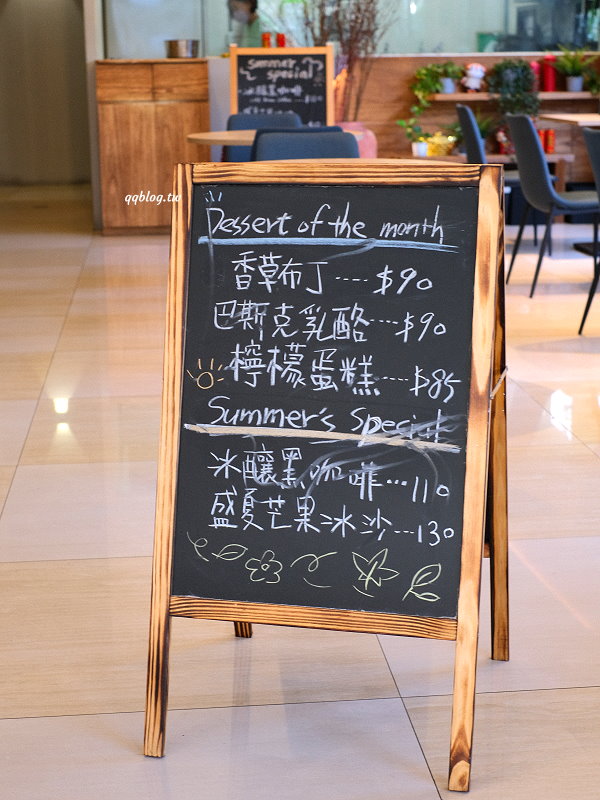 summer
special
冰釀黑咖啡
qqblog.tw
Dessert of the month
香草布丁----$90
巴斯克乳酪----$90
檸檬蛋糕----$85
Summer's Special
冰釀黑咖啡...110
盛夏芒果冰沙...130